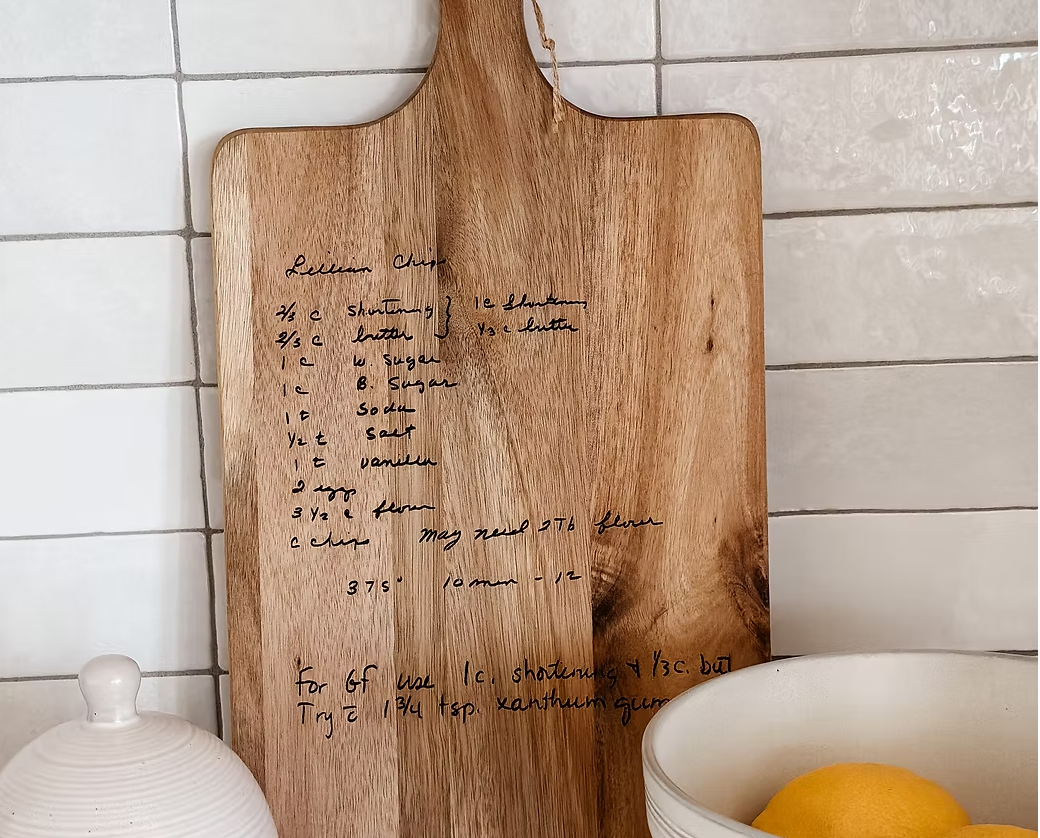 Lillian Chip
2/3 c shortening } 1c Shortening
2/3 c butter } 1/3 c butter
1 c w. Sugar
1c B. Sugar
1 t Soda
1/2 t Salt
1 t vanilla
2 eggs
3 1/2 c flour
c chips may need 2Tb flour
375° 10 min - 12
For GF use 1c. shortening & 1/3c. butt
Try c̄ 1 3/4 tsp. xanthum gum